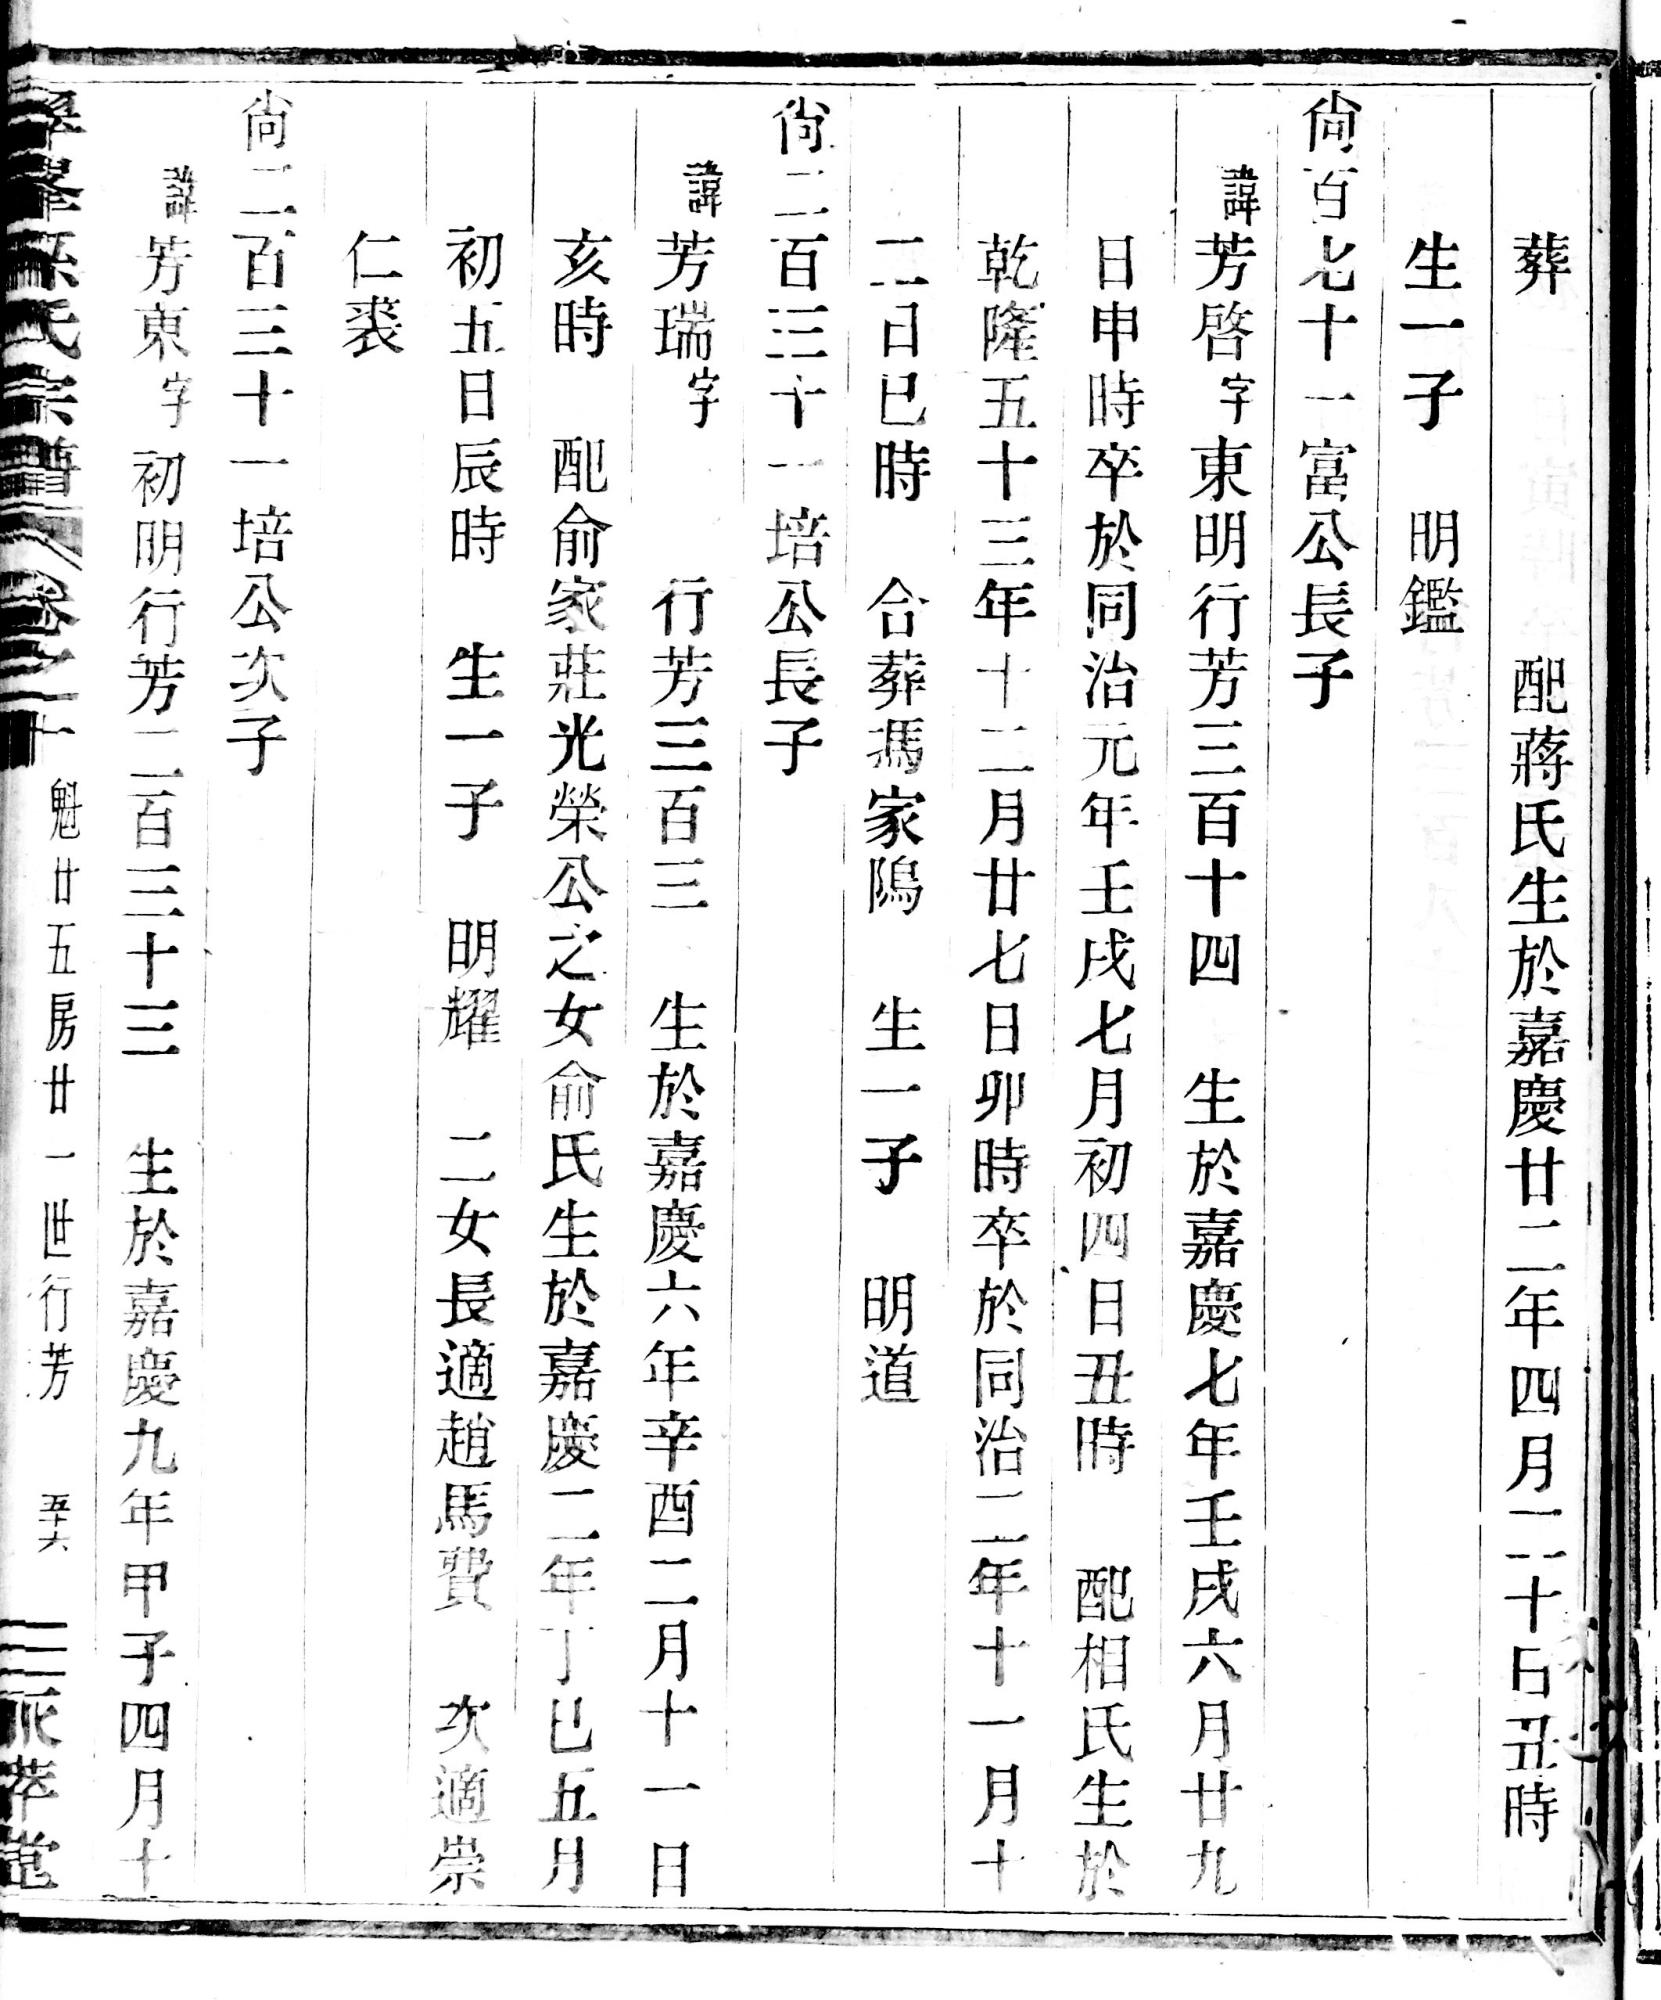 葬　配蔣氏生於嘉慶廿二年四月二十日丑時
生一子　明鑑
尙百七十一富公長子
諱芳啓字東明行芳三百十四　生於嘉慶七年壬戌六月廿九
日申時卒於同治元年壬戌七月初四日丑時　配相氏生於
乾隆五十三年十二月廿七日卯時卒於同治二年十一月十
二日巳時　合葬馮家隖　生一子　明道
尙二百三十一培公長子
諱芳瑞字　行芳三百三　生於嘉慶六年辛酉二月十一日
亥時　配俞家莊光榮公之女俞氏生於嘉慶二年丁巳五月
初五日辰時　生一子　明耀　二女長適趙馬費　次適崇
仁裘
尙二百三十一培公次子
諱芳東字初明行芳二百三十三　生於嘉慶九年甲子四月十
孫氏宗譜　卷之二十　魁廿五房廿一世行芳　五十六　三派萃堂